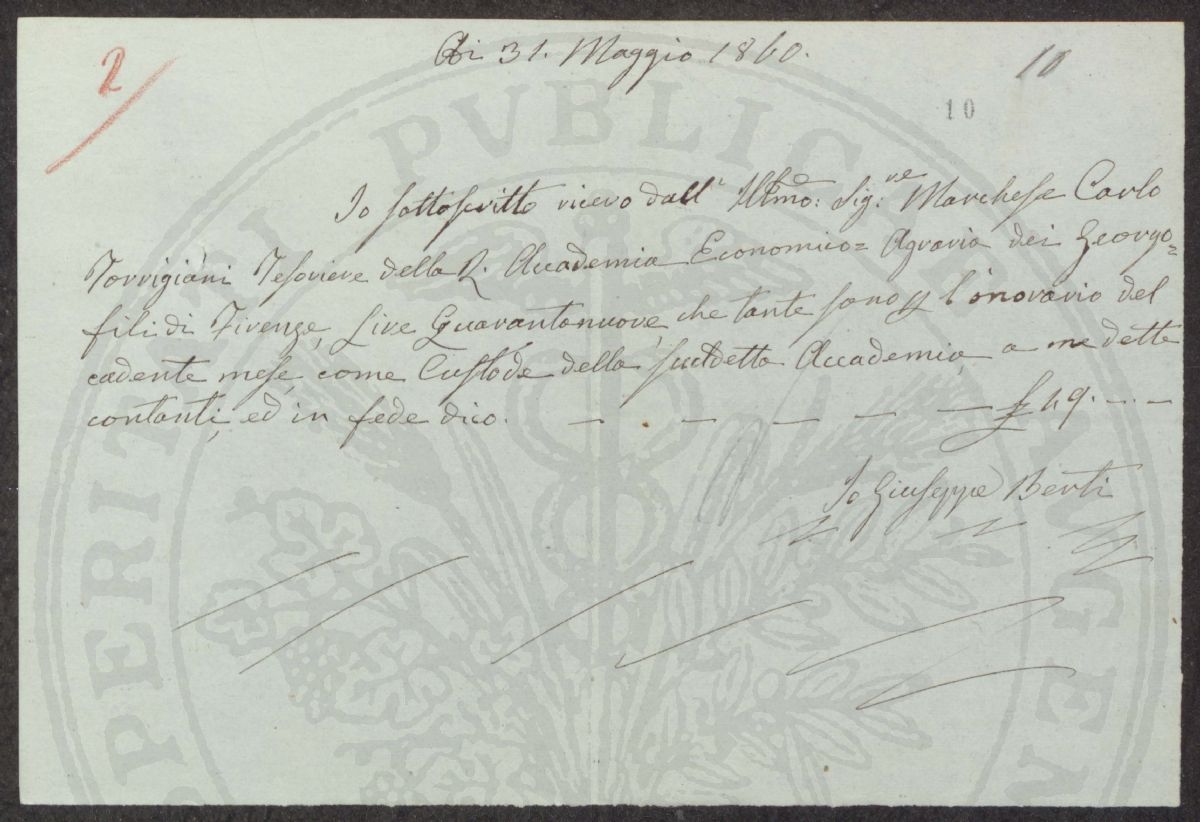 2
Di 31. Maggio 1860.
10
10
Io sottoscritto ricevo dall' Illmo: Sig.re Marchese Carlo
Torrigiani Tesoriere della R. Accademia Economico= Agraria dei Georgo=
fili di Firenze, Lire Quarantanuove, che tante sono p l'onorario del
cadente mese, come Custode della suddetta Accademia, a me dette
contanti, ed in fede dico. — — — — — £ 49. — —
Io Giuseppe Berti
PROSPERITATI PUBLICAE AUGENDAE